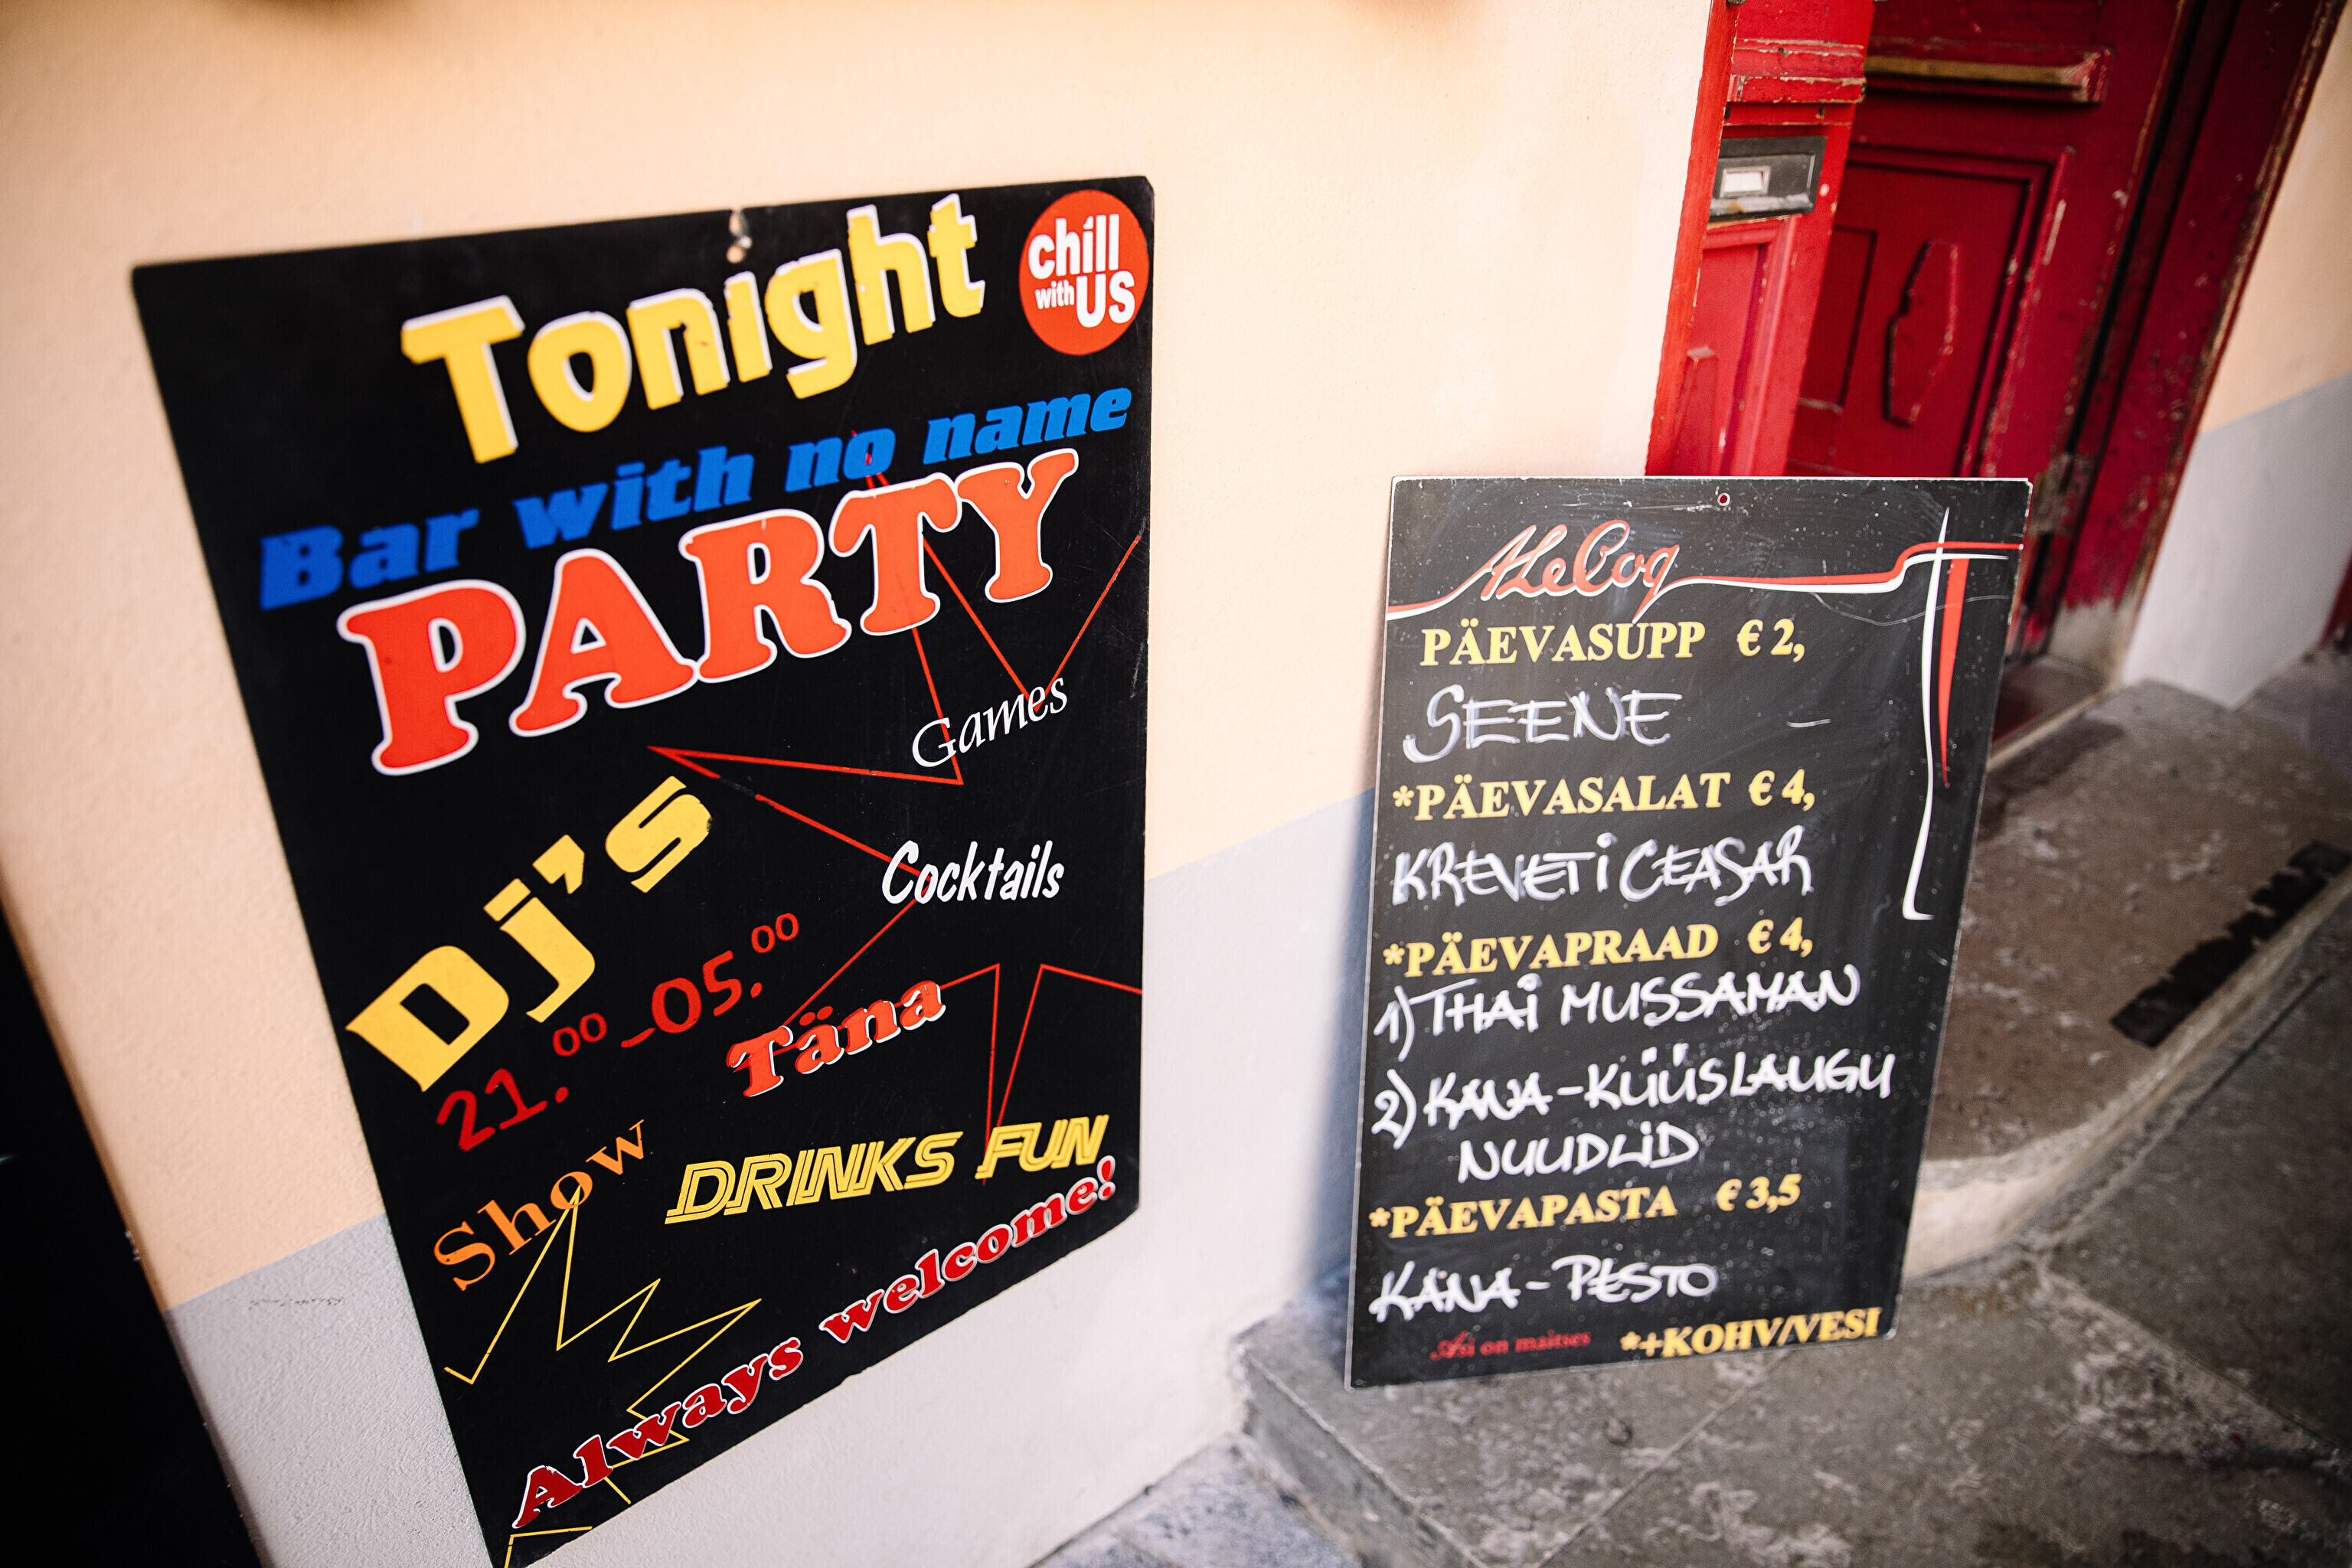 Tonight
chill
with US
Bar with no name
PARTY
Games
Dj's
Cocktails
21.00-05.00
Täna
Show
DRINKS FUN
Always welcome!
ALeCoq
PÄEVASUPP € 2,
SEENE
*PÄEVASALAT € 4,
KREVETI CEASAR
*PÄEVAPRAAD € 4,
1) THAI MUSSAMAN
2) KANA-KÜÜSLAUGU
NUUDLID
*PÄEVAPASTA € 3,5
KANA-PESTO
Asi on maitses
*+KOHV/VESI